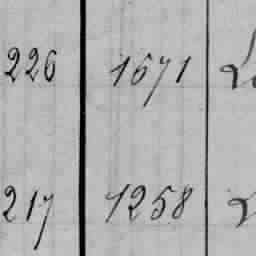 226 1671
217 1258